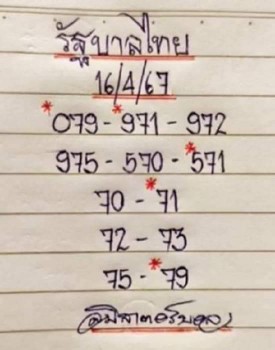 รัฐบาลไทย
16/4/67
*079 - *971 - 972
975 - 570 - *571
70 - *71
72 - 73
75 - *79